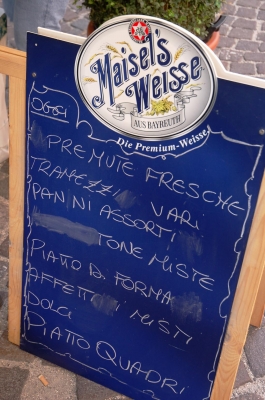 Maisel's
Weisse
AUS BAYREUTH
Die Premium-Weisse
OGGI
PREMUTE FRESCHE
TRAMEZZI VARI
PANINI ASSORTI
TONE MISTE
PIATTO D. FORMA
AFFETTATI MISTI
DOLCI
PIATTO QUADRI